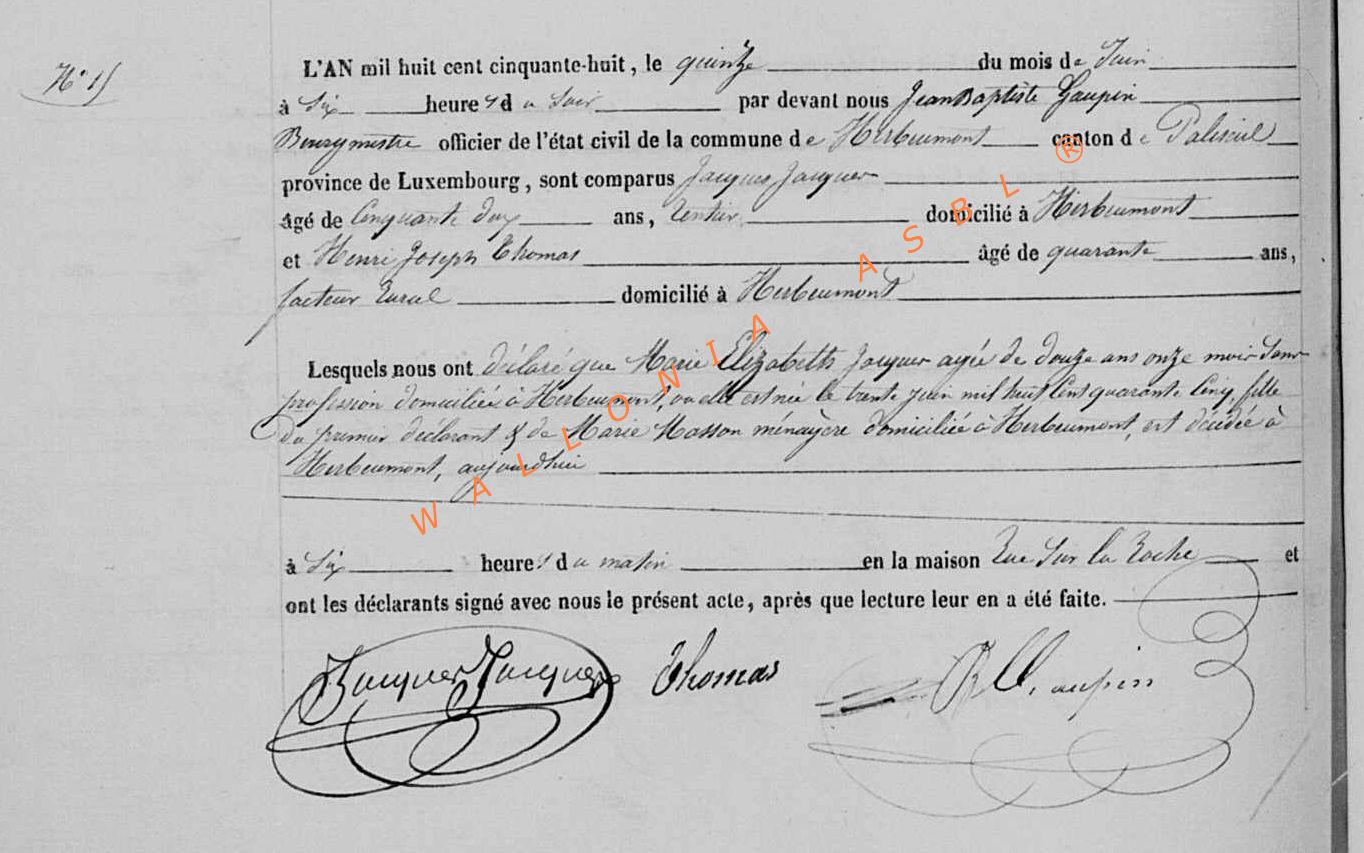 N° 15
L'AN mil huit cent cinquante-huit, le quinze du mois de Juin
à Six heures du Soir par devant nous Jean Baptiste Gaupin
Bourgmestre officier de l'état civil de la commune de Herbeumont canton de Paliseul
province de Luxembourg, sont comparus Jacques Jacques
âgé de Cinquante deux ans, rentier domicilié à Herbeumont
et Henri Joseph Thomas âgé de quarante ans,
facteur Rural domicilié à Herbeumont
Lesquels nous ont déclaré que Marie Elizabeth Jacques agée de douze ans onze mois Sans
profession domiciliée à Herbeumont, ou elle est née le trente juin mil huit Cent quarante Cinq, fille
du premier déclarant & de Marie Masson ménagère domiciliée à Herbeumont, est décédée à
Herbeumont, aujourdhui
à Six heures du matin en la maison Rue Sur la Roche et
ont les déclarants signé avec nous le présent acte, après que lecture leur en a été faite.
Jacques Thomas Gaupin
WALLONIA ASBL ®